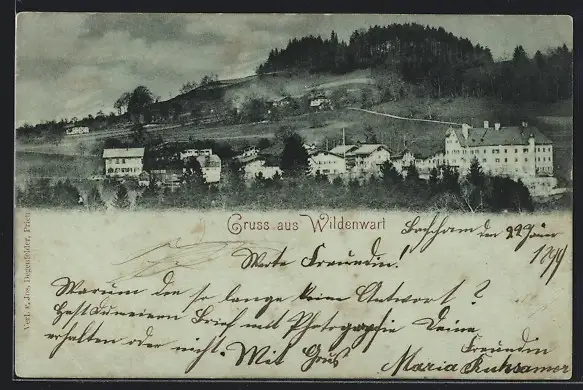 Gruss aus Wildenwart
den 22 Juni
1899
Werte Freundin!
Warum den so lange keine Antwort?
Hast du meinen Brief mit Photographie Deine
erhalten oder nicht. Mit Gruß
Freundin
Maria Ruhsamer
Verl. v. Jos. Degenfelder, Prien